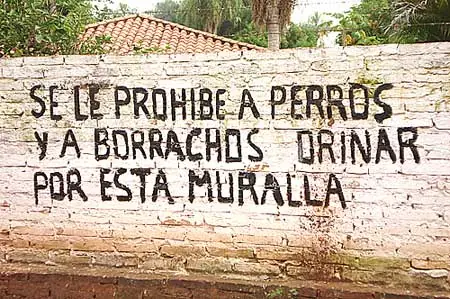 SE LE PROHIBE A PERROS
Y A BORRACHOS ORINAR
POR ESTA MURALLA